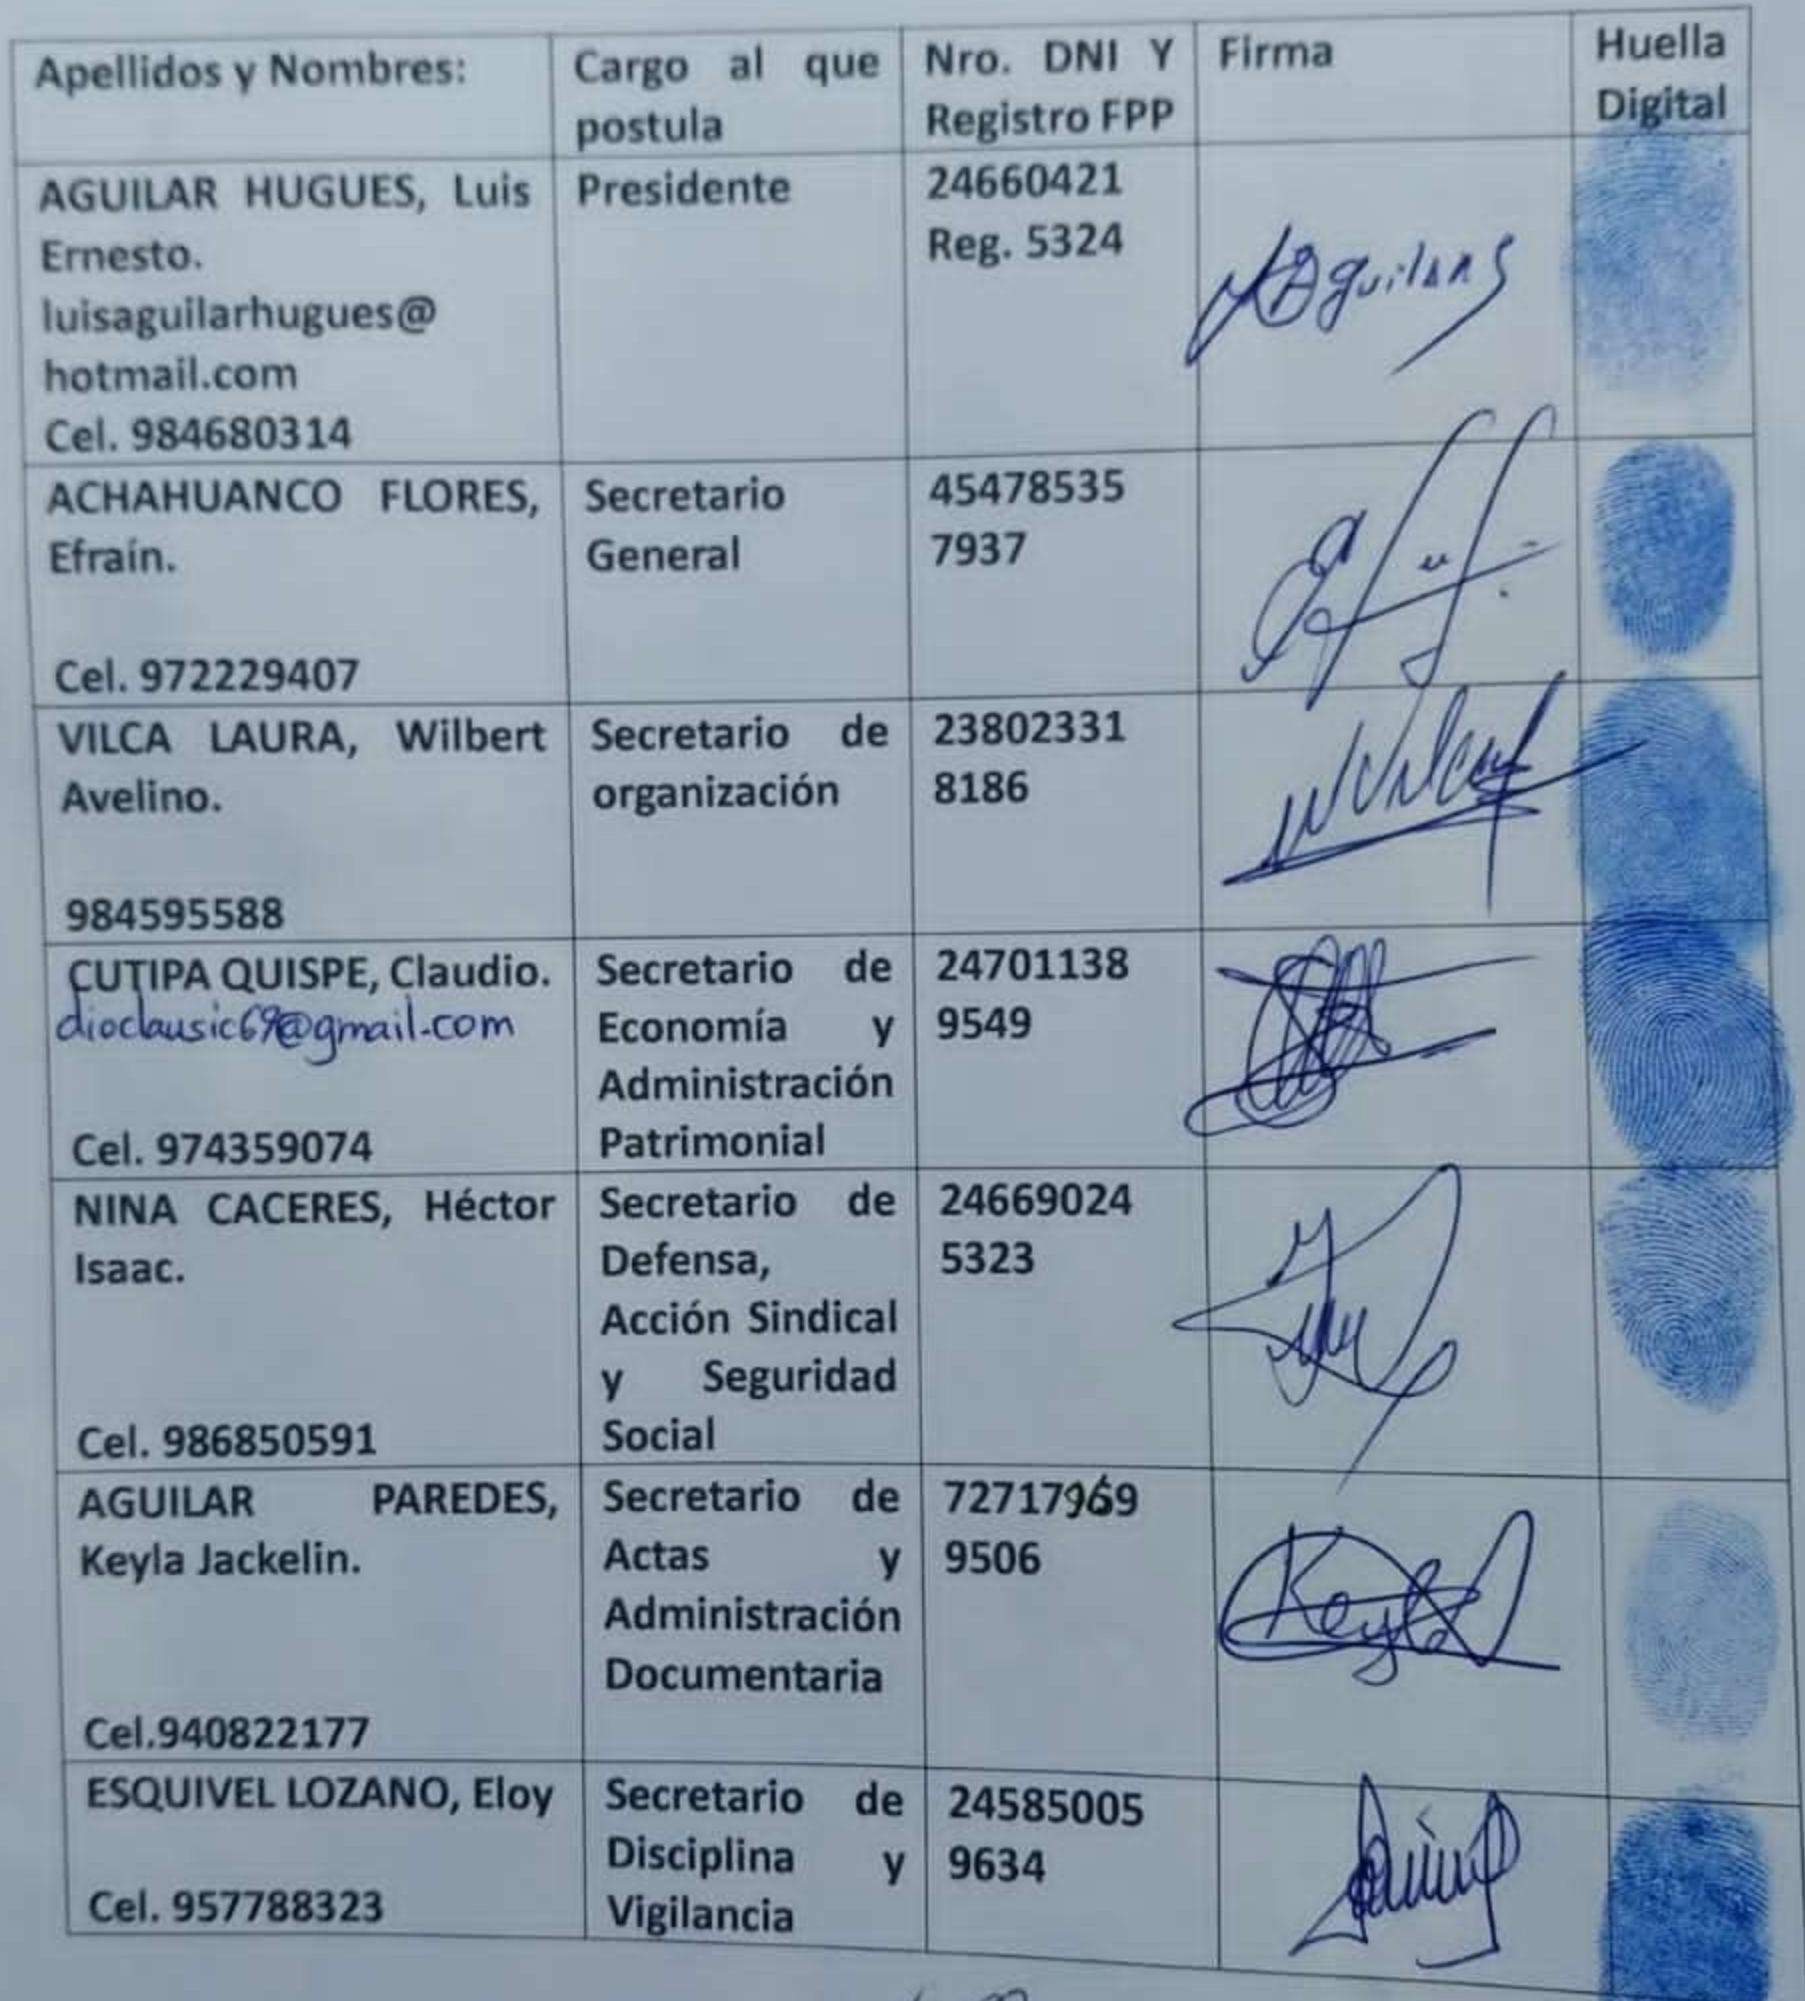 Apellidos y Nombres:
Cargo al que
postula
Nro. DNI Y
Registro FPP
Firma
Huella
Digital
AGUILAR HUGUES, Luis
Ernesto.
luisaguilarhugues@
hotmail.com
Cel. 984680314
Presidente
24660421
Reg. 5324
ACHAHUANCO FLORES,
Efraín.
Cel. 972229407
Secretario
General
45478535
7937
VILCA LAURA, Wilbert
Avelino.
984595588
Secretario de
organización
23802331
8186
CUTIPA QUISPE, Claudio.
dioclausic69@gmail.com
Cel. 974359074
Secretario de
Economía y
Administración
Patrimonial
24701138
9549
NINA CACERES, Héctor
Isaac.
Cel. 986850591
Secretario de
Defensa,
Acción Sindical
y Seguridad
Social
24669024
5323
AGUILAR PAREDES,
Keyla Jackelin.
Cel.940822177
Secretario de
Actas y
Administración
Documentaria
72717969
9506
Keyla
ESQUIVEL LOZANO, Eloy
Cel. 957788323
Secretario de
Disciplina y
Vigilancia
24585005
9634